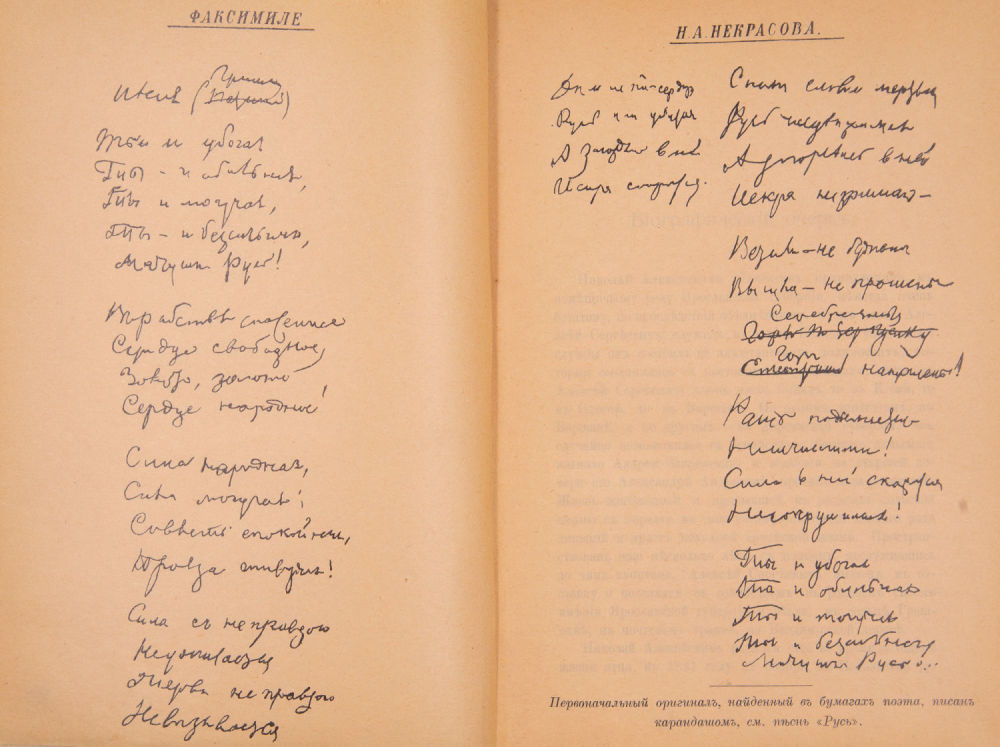 ФАКСИМИЛЕ
Пѣсня (Гриши)
Ты и убогая
Ты - и обильная,
Ты и могучая,
Ты - и безсильная,
Матушка Русь!
Въ рабствѣ спасенное
Сердце свободное,
Золото, золото
Сердце народное!
Сила народная,
Сила могучая;
Совѣсть спокойная,
Правда живучая!
Сила съ неправдою
Не уживается
Жертва неправдою
Не вызывается
Н.А.НЕКРАСОВА.
Русь
А въ ней
Искра
Словно мертвая
Русь недвижимая
А загорѣлась в ней
Искра незримая—
Встали—не бужены
Вышли—не прошены
Серебряный
Горы
напрошены!
Рать подымается
Неисчислимая!
Сила в ней скажется
Несокрушимая!
Ты и убогая
Ты и обильная
Ты и могучая
Ты и безсильная
Матушка Русь!..
Первоначальный оригиналъ, найденный въ бумагахъ поэта, писанъ
карандашомъ, см. пѣснь «Русь».